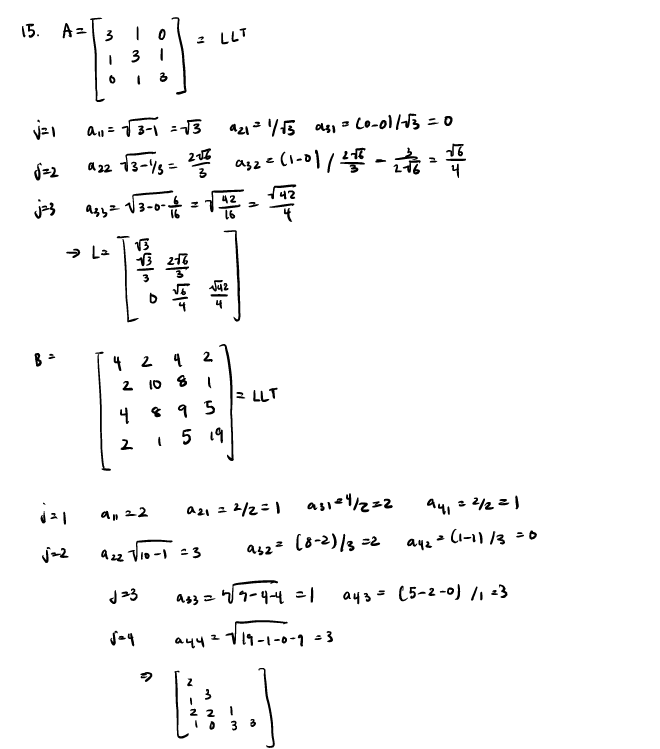 15. A = [ 3 1 0 = LLT
1 3 1
0 1 3 ]
j=1 a11 = √3-1 = √3 a21 = 1/√3 a31 = (0-0)/√3 = 0
j=2 a22 √3-1/3 = 2√6/3 a32 = (1-0) / 2√6/3 - 3/2√6 = √6/4
j=3 a33 = √3-0-6/16 = √42/16 = √42/4
→ L = [ √3
√3/3 2√6/3
0 √6/4 √42/4 ]
B = [ 4 2 4 2
2 10 8 1
4 8 9 5 = LLT
2 1 5 19 ]
j=1 a11 = 2 a21 = 2/2 = 1 a31 = 4/2 = 2 a41 = 2/2 = 1
j=2 a22 √10-1 = 3 a32 = (8-2)/3 = 2 a42 = (1-1)/3 = 0
j=3 a33 = √9-4-4 = 1 a43 = (5-2-0)/1 = 3
j=4 a44 = √19-1-0-9 = 3
⇒ [ 2
1 3
2 2 1
1 0 3 3 ]